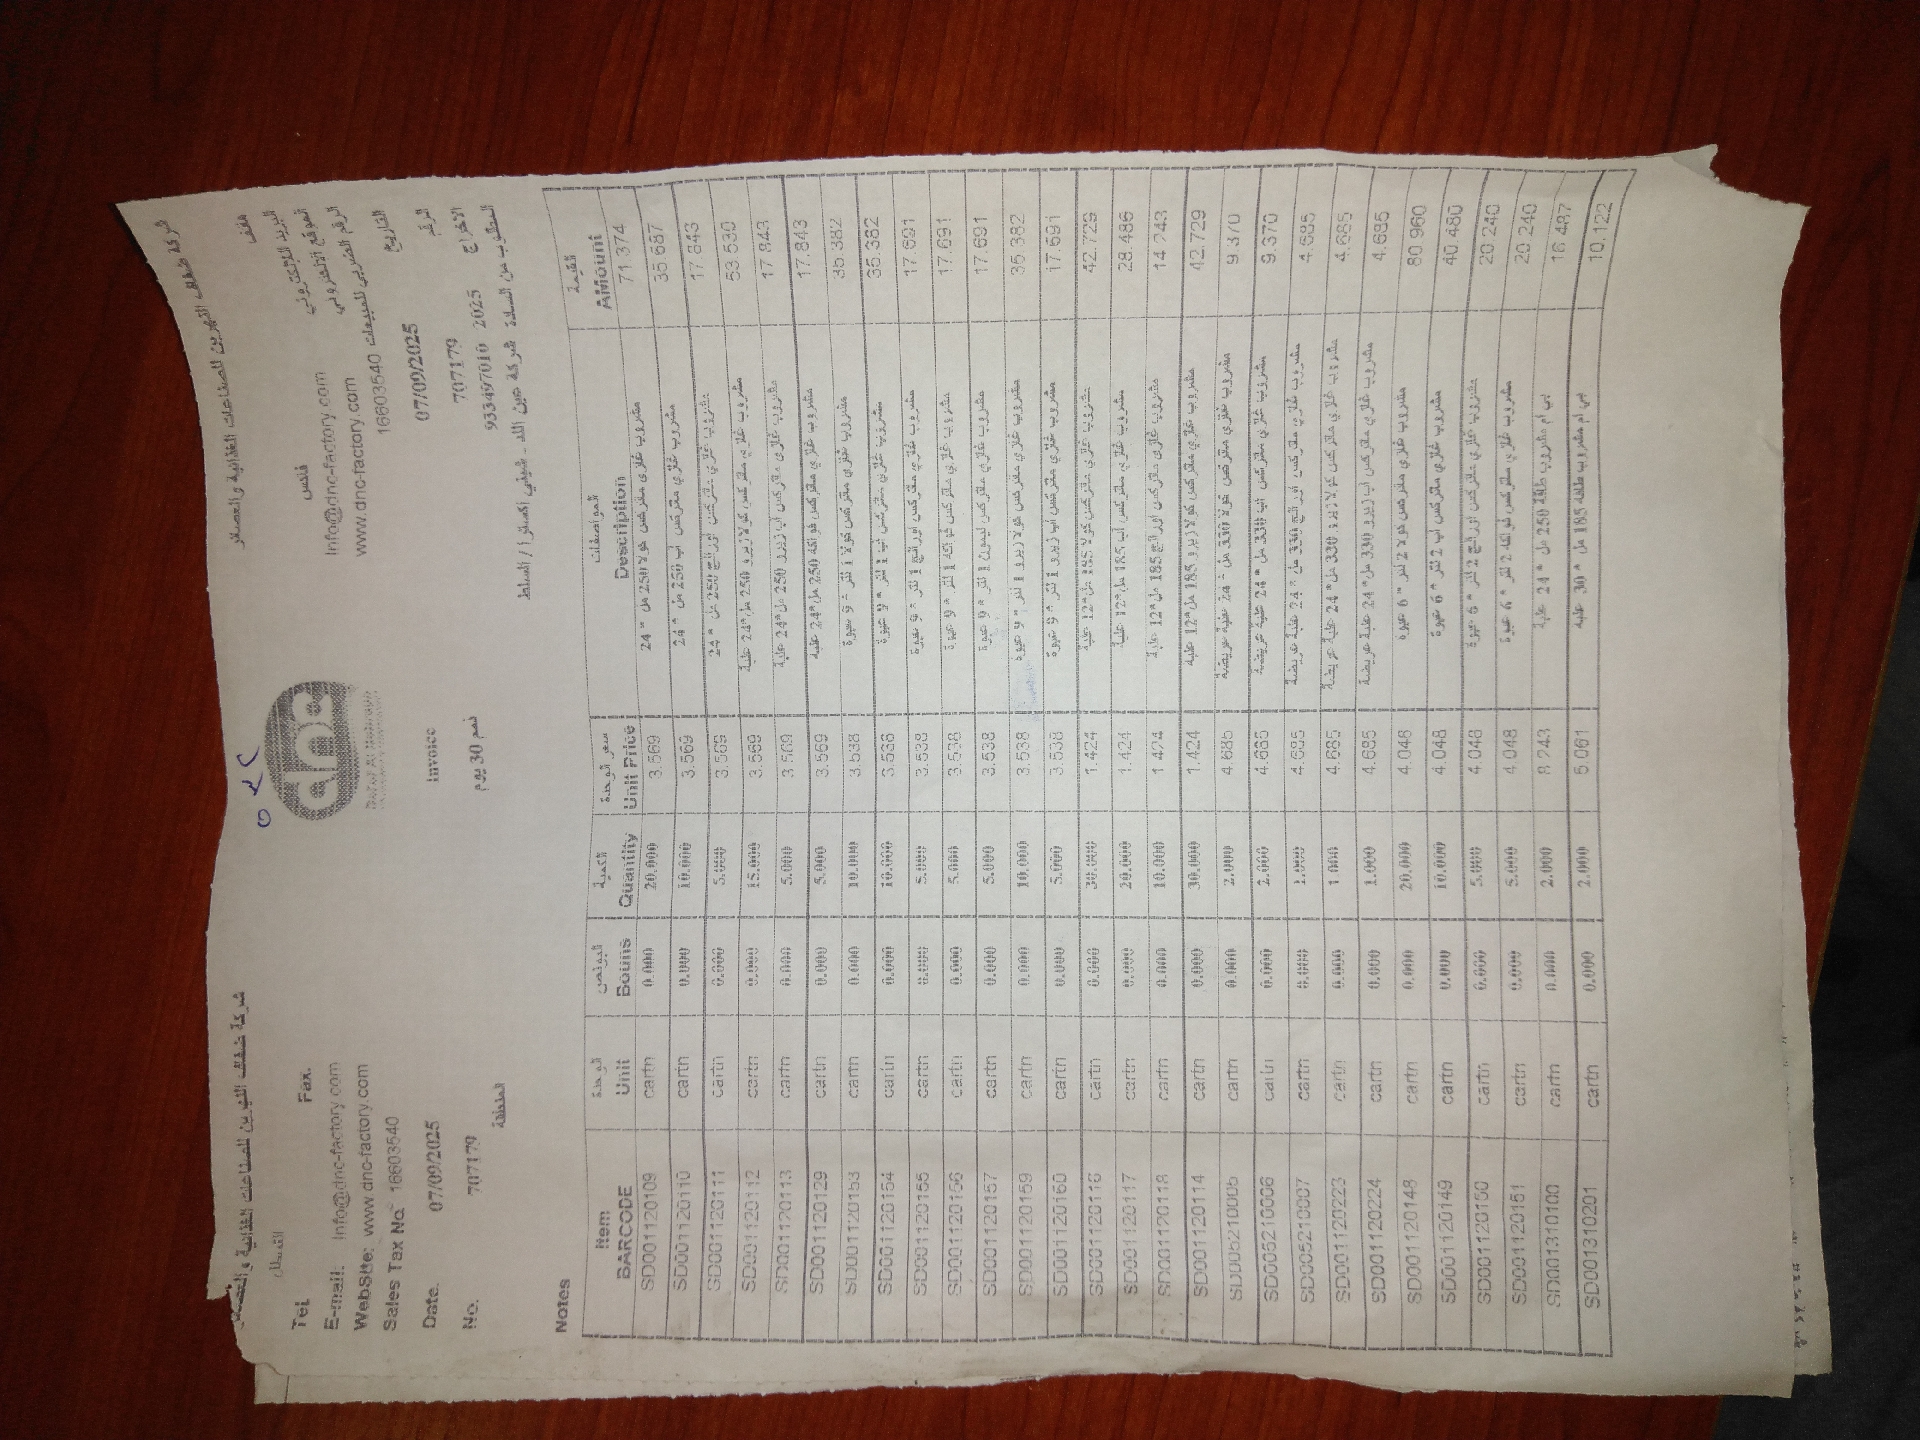 شركة ضفاف النهرين للصناعات الغذائية والعصائر
شركة ضفاف النهرين للصناعات الغذائية و
القسطل
٥٨٢
dnc
Tel. Fax. فاكس هاتف
E-mail: Info@dnc-factory.com Info@dnc-factory.com البريد الالكتروني
WebSite: www.dnc-factory.com www.dnc-factory.com الموقع الالكتروني
Sales Tax No. 16603540 16603540 الرقم الضريبي للمبيعات
Date. 07/09/2025 Invoice 07/09/2025 التاريخ
No. 707179 707179 الرقم
ذمم 30 يوم 933497010 2025 الاخراج
المنطقة المطلوب من السادة شركة عين الله - سيفي اكسترا / السلط
Notes
Item الوحدة البونص الكمية سعر الوحدة المواصفات القيمة
BARCODE Unit Bouns Quantity Unit Price Description AMount
SD001120109 cartn 0.000 20.000 3.569 مشروب غازي متركس كولا 250 مل * 24 71.374
SD001120110 cartn 0.000 10.000 3.569 مشروب غازي متركس اب 250 مل * 24 35.687
SD001120111 cartn 0.000 5.000 3.569 مشروب غازي متركس اورانج 250 مل *24 17.843
SD001120112 cartn 0.000 15.000 3.569 مشروب غازي متركس كولا زيرو 250 مل*24 علبة 53.530
SD001120113 cartn 0.000 5.000 3.569 مشروب غازي متركس اب زيرو 250 مل*24 علبة 17.843
SD001120129 cartn 0.000 5.000 3.569 مشروب غازي متركس فواكه 250 مل*24 علبة 17.843
SD001120153 cartn 0.000 10.000 3.538 مشروب غازي متركس كولا 1 لتر * 9 عبوة 35.382
SD001120154 cartn 0.000 10.000 3.538 مشروب غازي متركس اب 1 لتر * 9 عبوة 35.382
SD001120155 cartn 0.000 5.000 3.538 مشروب غازي متركس اورانج 1 لتر * 9 عبوة 17.691
SD001120156 cartn 0.000 5.000 3.538 مشروب غازي متركس فواكه 1 لتر * 9 عبوة 17.691
SD001120157 cartn 0.000 5.000 3.538 مشروب غازي متركس ليمون 1 لتر * 9 عبوة 17.691
SD001120159 cartn 0.000 10.000 3.538 مشروب غازي متركس كولا زيرو 1 لتر * 9 عبوة 35.382
SD001120160 cartn 0.000 5.000 3.538 مشروب غازي متركس اب زيرو 1 لتر * 9 عبوة 17.691
SD001120116 cartn 0.000 30.000 1.424 مشروب غازي متركس كولا 185 مل*12 علبة 42.729
SD001120117 cartn 0.000 20.000 1.424 مشروب غازي متركس اب 185 مل*12 علبة 28.486
SD001120118 cartn 0.000 10.000 1.424 مشروب غازي متركس اورانج 185 مل*12 علبة 14.243
SD001120114 cartn 0.000 30.000 1.424 مشروب غازي متركس كولا زيرو 185 مل*12 علبة 42.729
SD005210005 cartn 0.000 2.000 4.685 مشروب غازي متركس كولا 330 مل * 24 علبة عريضة 9.370
SD005210006 cartn 0.000 2.000 4.685 مشروب غازي متركس اب 330 مل * 24 علبة عريضة 9.370
SD005210007 cartn 0.000 1.000 4.685 مشروب غازي متركس اورانج 330 مل * 24 علبة عريضة 4.685
SD001120223 cartn 0.000 1.000 4.685 مشروب غازي متركس كولا زيرو 330 مل * 24 علبة عريضة 4.685
SD001120224 cartn 0.000 1.000 4.685 مشروب غازي متركس اب زيرو 330 مل* 24 علبة عريضة 4.685
SD001120148 cartn 0.000 20.000 4.048 مشروب غازي متركس كولا 2 لتر * 6 عبوة 80.960
SD001120149 cartn 0.000 10.000 4.048 مشروب غازي متركس اب 2 لتر * 6 عبوة 40.480
SD001120150 cartn 0.000 5.000 4.048 مشروب غازي متركس اورانج 2 لتر * 6 عبوة 20.240
SD001120151 cartn 0.000 5.000 4.048 مشروب غازي متركس فواكه 2 لتر * 6 عبوة 20.240
SD001310100 cartn 0.000 2.000 8.243 بي ام مشروب طاقة 250 مل * 24 علبة 16.487
SD001310201 cartn 0.000 2.000 5.061 بي ام مشروب طاقة 185 مل * 30 علبة 10.122